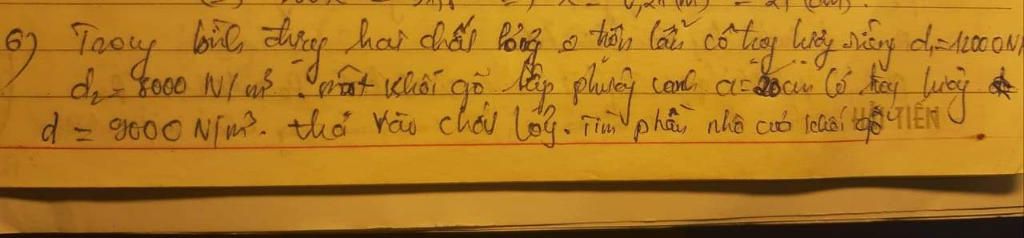 6) Trong bình đựng hai chất lỏng o trộn lẫn có trọng lượng riêng d₁=12000N/
d₂ = 8000 N/m³. một khối gỗ lập phương cạnh a = 20cm có trọng lượng
d = 9000 N/m³. thả vào chất lỏng. Tìm phần nhô của khối gỗ TIẾN